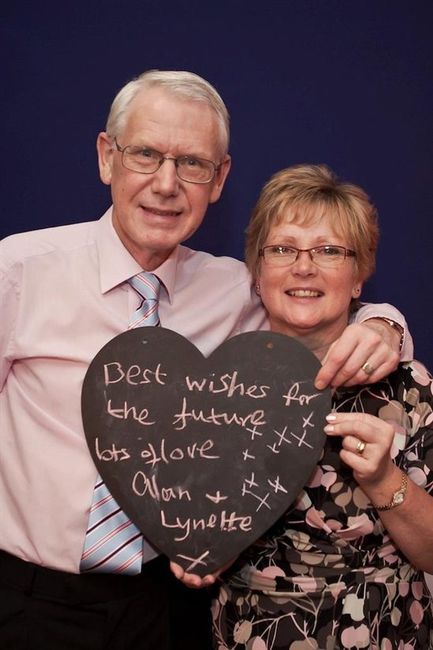 Best wishes for
the future x x x
lots of love x x x
Alan + x x x
Lynette
x